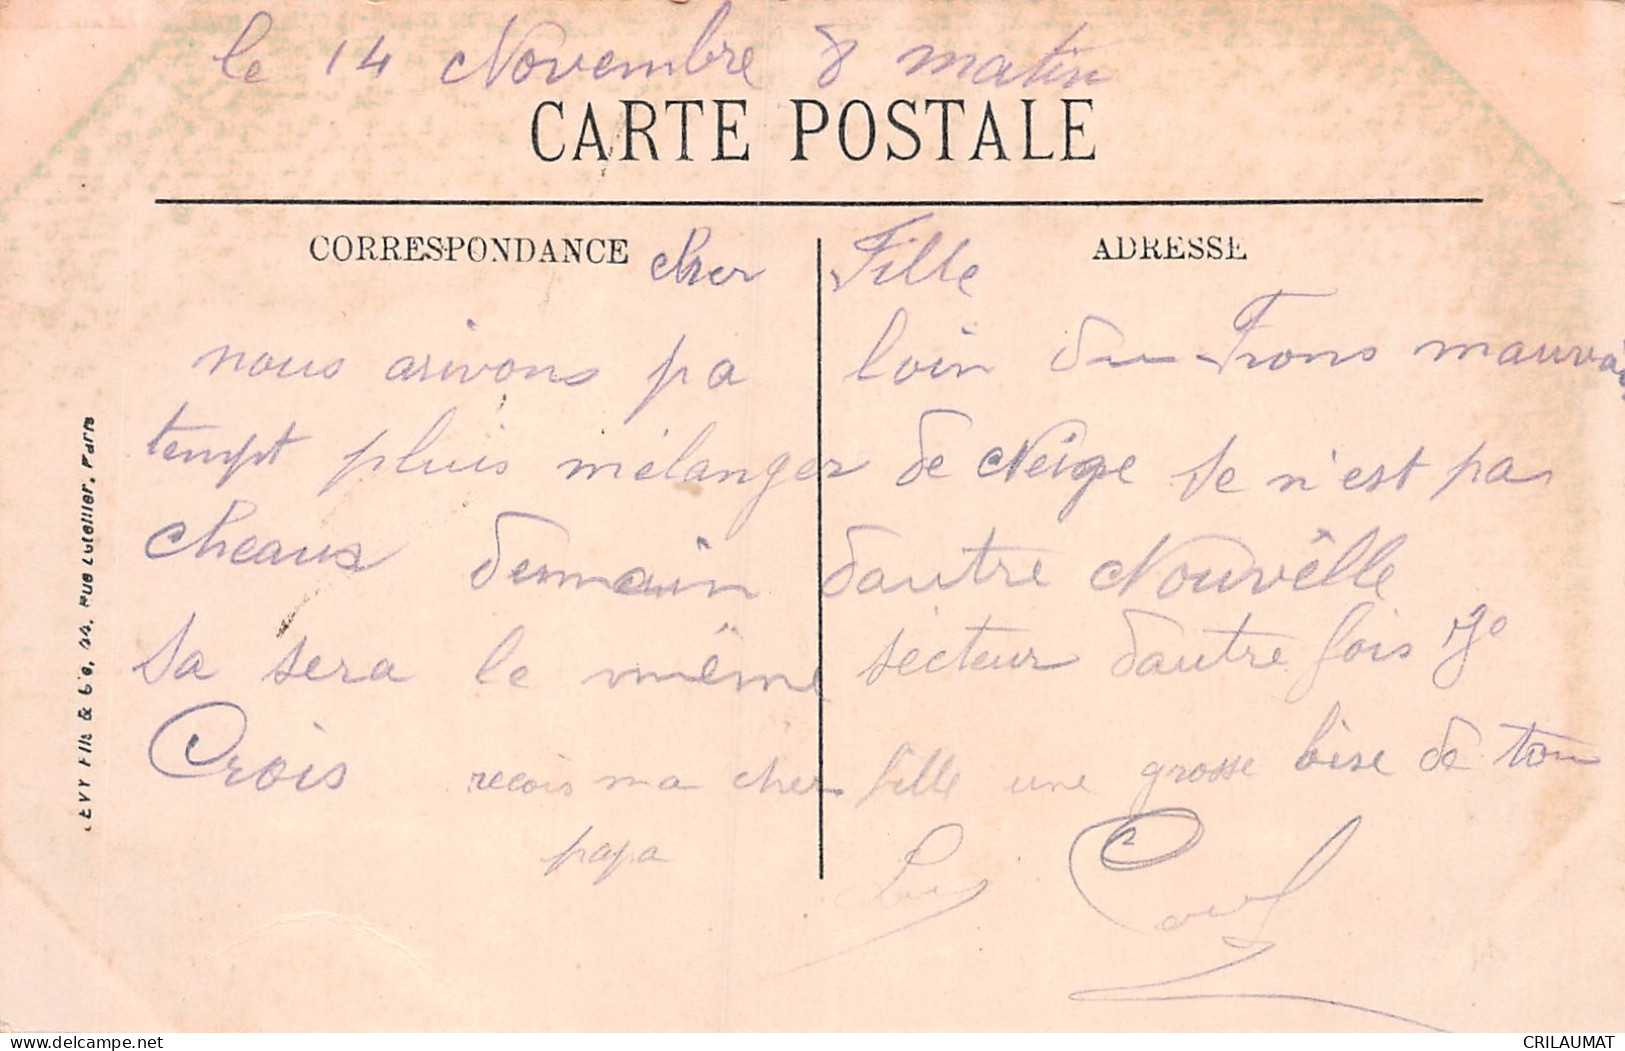 le 14 Novembre 8 matin
CARTE POSTALE
CORRESPONDANCE
ADRESSE
cher Fille
nous arivons pa loin du Frons mauvais
tempt pluis mélanger de Neige se n'est pa
cheaux demain dautre Nouvêlle
sa sera le même secteur dautre fois je
Crois recois ma cher fille une grosse bise de ton
papa
LEVY Fils & Cie, 44, Rue Letellier, Paris
delcampe.net
CRILAUMAT